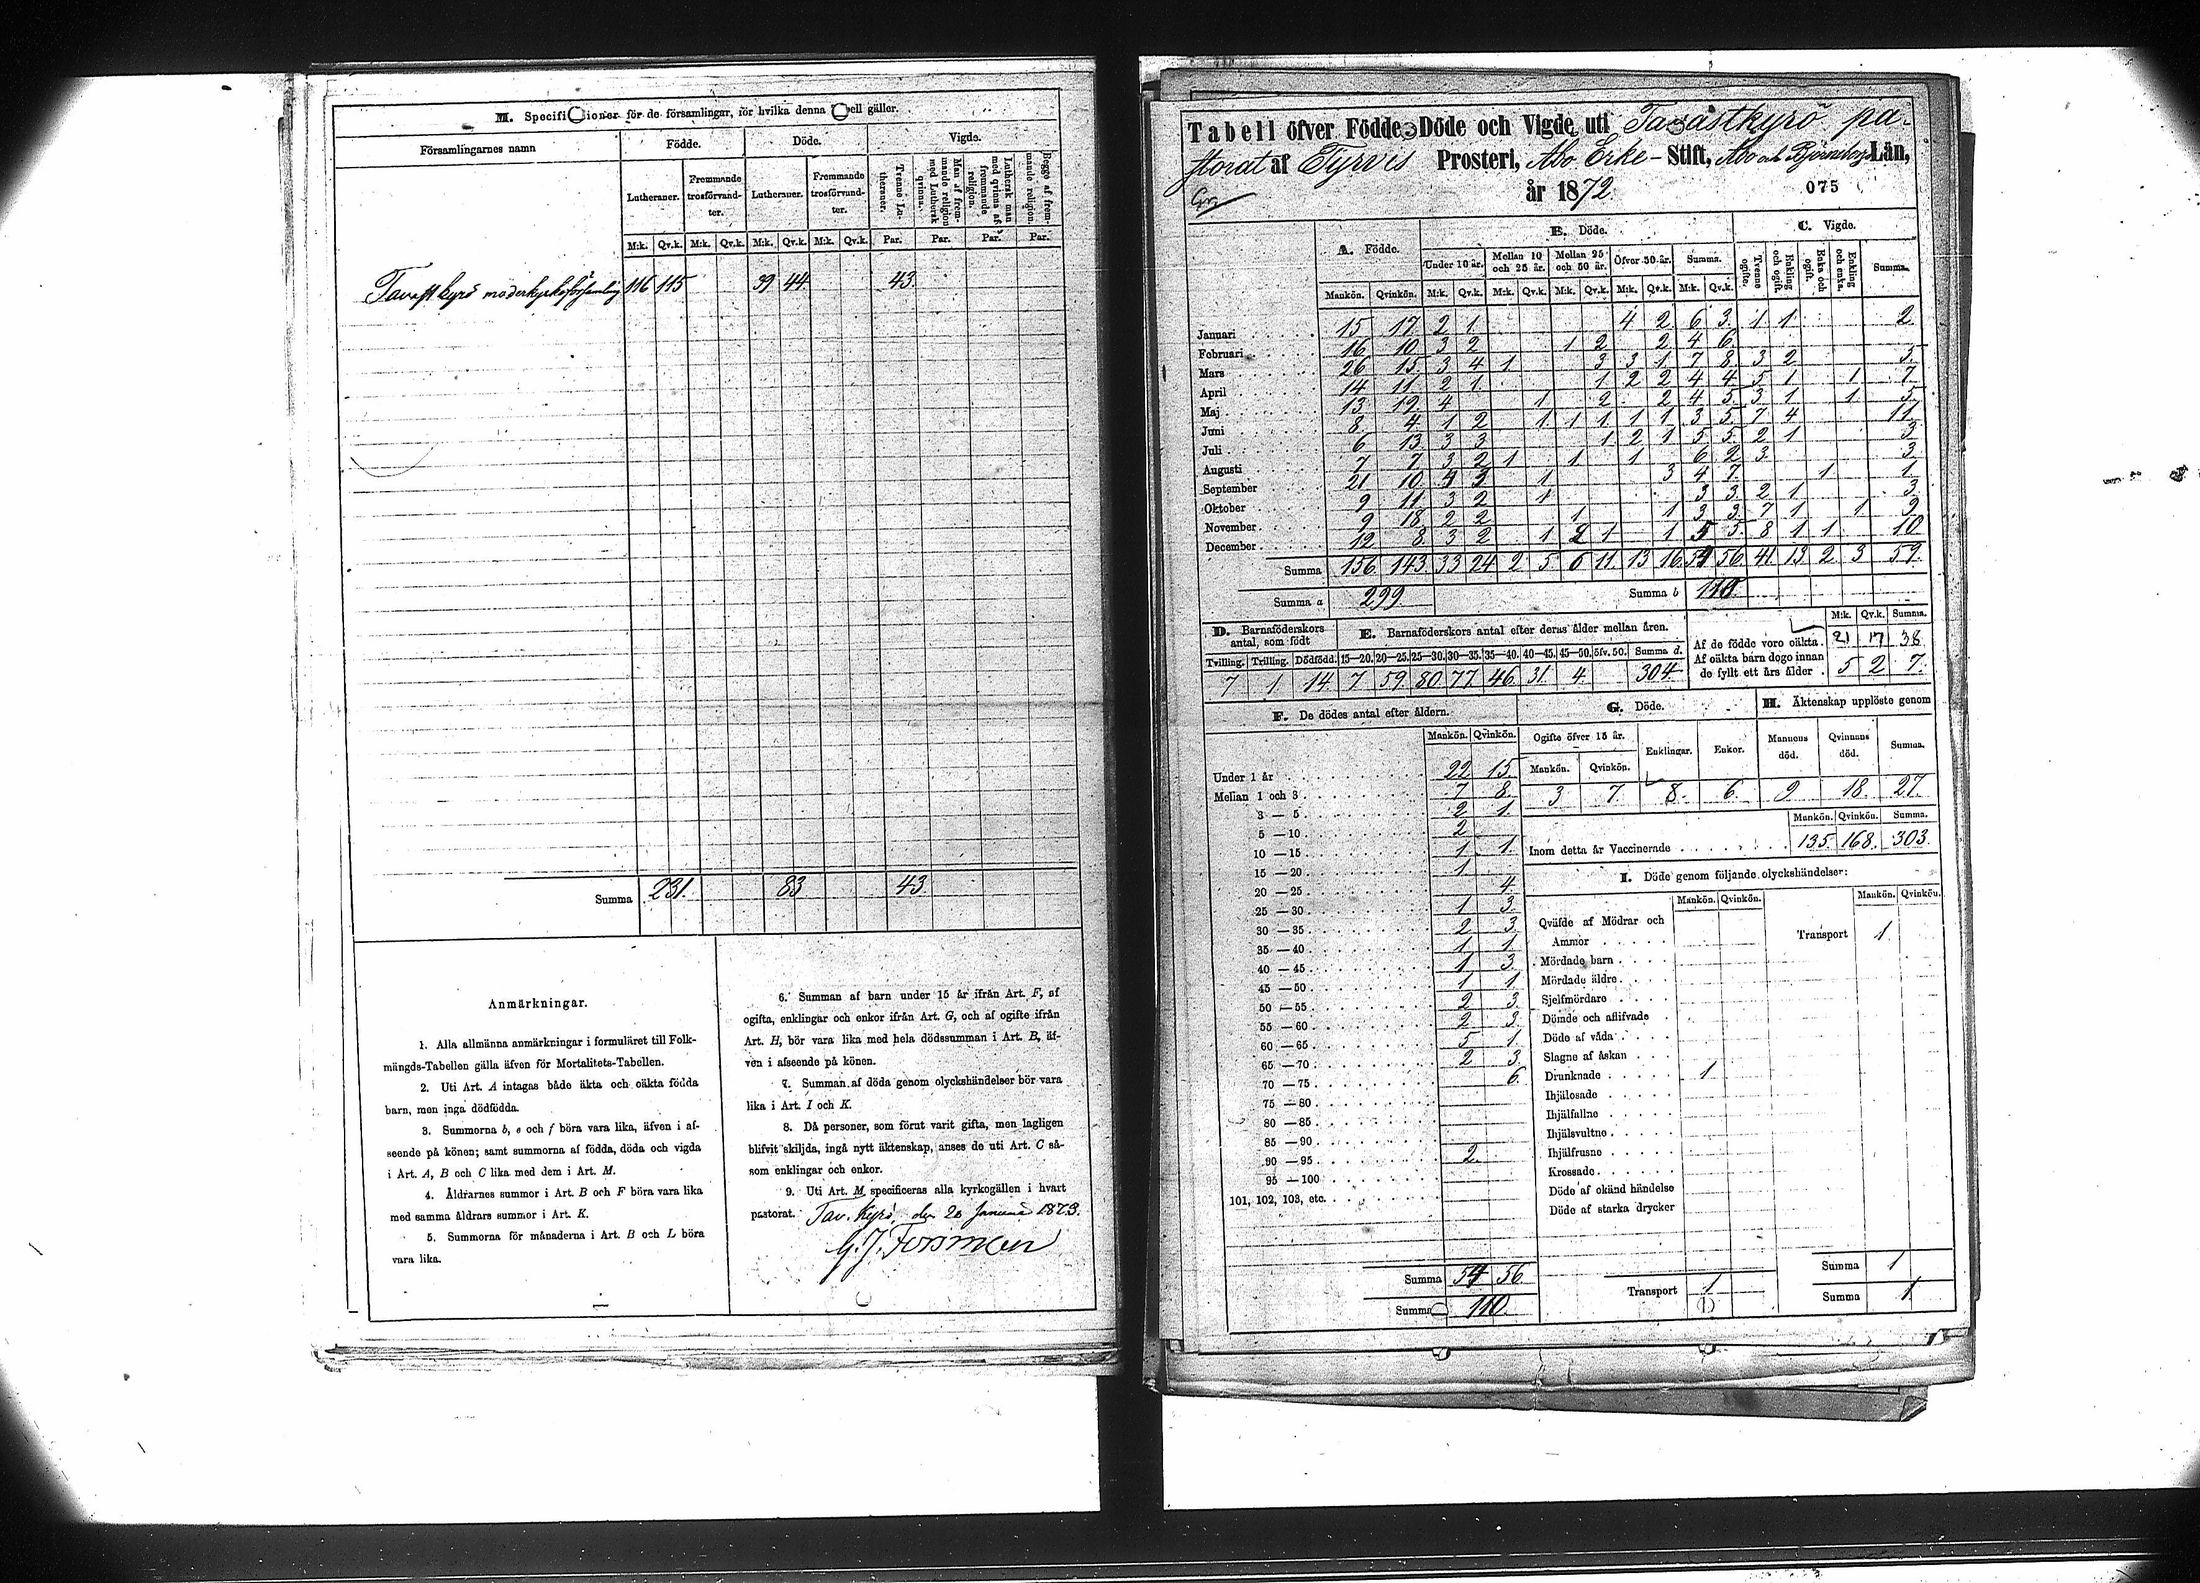 M. Specifi ioner för de församlingar, för hvilka denna bell gäller.
Församlingarnes namn
Födde. Döde. Vigde.
Lutheraner. Fremmande trosförvand-ter. Lutheraner. Fremmande trosförvand-ter. Trenne Lu-theraner. Man af frem-mande religion med Luthersk qvinna. Luthersk man med qvinna af fremmande religion. Begge af frem-mande religion.
M:k. Qv.k. M:k. Qv.k. M:k. Qv.k. M:k. Qv.k. Par. Par. Par. Par.
Tavastkyrö moderkyrkoförsamling 116 115 39 44 43
Summa 231. 83 43
Anmärkningar.
1. Alla allmänna anmärkningar i formuläret till Folk-
mängds-Tabellen gälla äfven för Mortalitets-Tabellen.
2. Uti Art. A intagas både äkta och oäkta födda
barn, men inga dödfödda.
3. Summorna b, e och f böra vara lika, äfven i af-
seende på könen; samt summorna af födda, döda och vigda
i Art. A, B och C lika med dem i Art. M.
4. Åldrarnes summor i Art. B och F böra vara lika
med samma åldrars summor i Art. K.
5. Summorna för månaderna i Art. B och L böra
vara lika.
6. Summan af barn under 15 år ifrån Art. F, af
ogifta, enklingar och enkor ifrån Art. G, och af ogifte ifrån
Art. H, bör vara lika med hela dödssumman i Art. B, äf-
ven i afseende på könen.
7. Summan af döda genom olyckshändelser bör vara
lika i Art. I och K.
8. Då personer, som förut varit gifta, men lagligen
blifvit skiljda, ingå nytt äktenskap, anses de uti Art. C så-
som enklingar och enkor.
9. Uti Art. M specificeras alla kyrkogällen i hvart
pastorat. Tav. Kyrö, den 20 Januari 1873.
G. J. Forsman
Tabell öfver Födde, Döde och Vigde, uti Tavastkyrö pa-
storat af Tyrvis Prosteri, Åbo Erke-Stift, Åbo och Björneborgs Län,
år 1872.
075
A. Födde. B. Döde. C. Vigde.
Under 10 år. Mellan 10 och 25 år. Mellan 25 och 50 år. Öfver 50 år. Summa. Trenne ogifte. Enkling och ogift. Enka och ogift. Enkling och enka. Summa.
Mankön. Qvinkön. M:k. Qv.k. M:k. Qv.k. M:k. Qv.k. M:k. Qv.k. M:k. Qv.k.
Januari 15 17 2 1 4 2 6 3 1 1 2
Februari 16 10 3 2 1 2 2 4 6
Mars 26 15 3 4 1 3 3 1 7 8 3 2 5
April 14 11 2 1 1 2 2 4 4 5 1 1 7
Maj 13 19 4 1 2 2 4 5 3 1 1 5
Juni 8 4 1 2 1 1 1 1 1 3 5 7 4 11
Juli 6 13 3 3 1 2 1 5 5 2 1 3
Augusti 7 7 3 2 1 1 1 6 2 3 3
September 21 10 4 3 1 3 4 7 1 1
Oktober 9 11 3 2 1 3 3 2 1 3
November 9 18 2 2 1 1 3 3 7 1 1 9
December 12 8 3 2 1 2 1 1 5 5 8 1 1 10
Summa 156 143 33 24 2 5 6 11 13 16 54 56 41 13 2 3 59
Summa a 299 Summa b 110
D. Barnaföderskors antal, som födt
Tvilling. Trilling. Dödfödd.
7 1 14
E. Barnaföderskors antal efter deras ålder mellan åren.
15—20. 20—25. 25—30. 30—35. 35—40. 40—45. 45—50. öfv. 50. Summa d.
7 59 80 77 46 31 4 304
M:k. Qv.k. Summa.
Af de födde voro oäkta. 21 17 38
Af oäkta barn dogo innan
de fyllt ett års ålder 5 2 7
F. De dödes antal efter åldern.
Mankön. Qvinkön.
Under 1 år 22 15
Mellan 1 och 3 7 8
3 — 5 2 1
5 — 10 2
10 — 15 1 1
15 — 20 1
20 — 25 4
25 — 30 1 3
30 — 35 2 3
35 — 40 1 1
40 — 45 1 3
45 — 50 1 1
50 — 55 2 3
55 — 60 2 3
60 — 65 5 1
65 — 70 2 3
70 — 75 6
75 — 80
80 — 85
85 — 90
90 — 95 2
95 — 100
101, 102, 103, etc.
Summa 54 56
Summa 110
G. Döde.
Ogifte öfver 15 år. Enklingar. Enkor.
Mankön. Qvinkön.
3 7 8 6
H. Äktenskap upplöste genom
Mannens död. Qvinnans död. Summa.
9 18 27
Mankön. Qvinkön. Summa.
Inom detta år Vaccinerade 135 168 303
I. Döde genom följande olyckshändelser:
Mankön. Qvinkön. Mankön. Qvinkön.
Qväfde af Mödrar och
Ammor
Transport 1
Mördade barn
Mördade äldre
Sjelfmördare
Dömde och aflifvade
Döde af våda
Slagne af åskan
Drunknade 1
Ihjälosade
Ihjälfallne
Ihjälsvultne
Ihjälfrusne
Krossade
Döde af okänd händelse
Döde af starka drycker
Transport 1
(1)
Summa 1
Summa 1